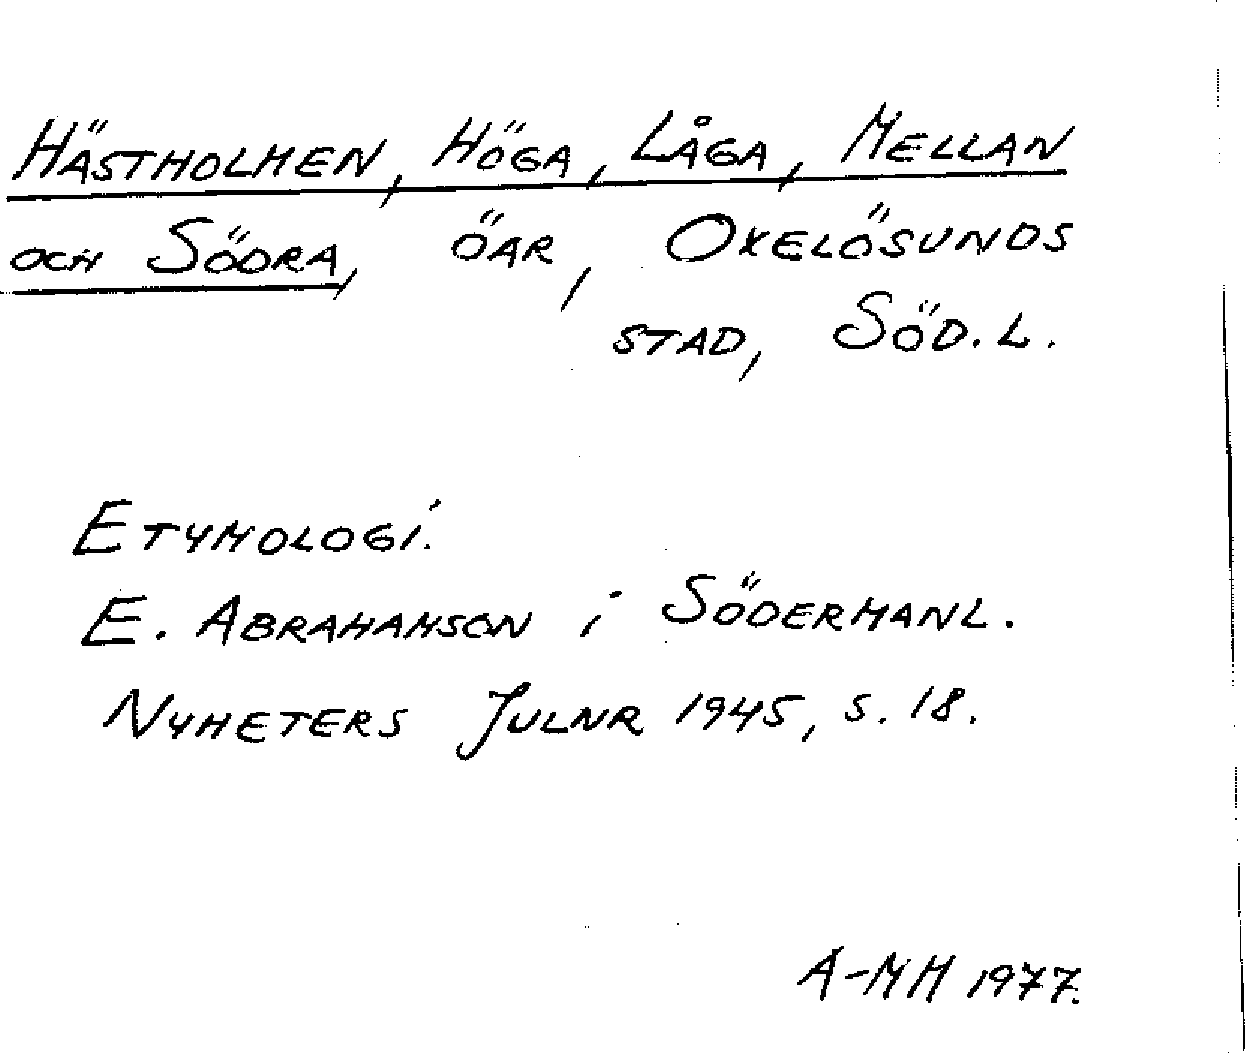 HÄSTHOLMEN, HÖGA, LÅGA, MELLAN
OCH SÖDRA, ÖAR, OXELÖSUNDS
STAD, SÖD.L.
ETYMOLOGI.
E. ABRAHAMSON i SÖDERMANL.
NYHETERS JULNR 1945, S. 18.
A-MH 1977.